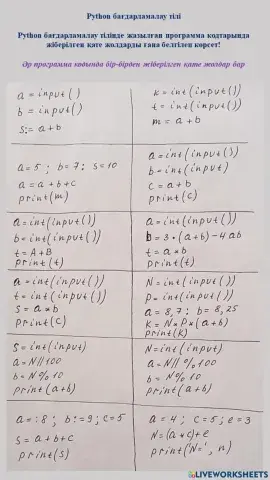 Python бағдарламалау тілі
Python бағдарламалау тілінде жазылған программа кодтарында
жіберілген қате жолдарды ғана белгілеп көрсет!
Әр программа кодында бір-бірден жіберілген қате жолдар бар
a = input()
b = input()
s:= a+b
k = int(input())
t = int(input())
m = a+b
a = 5 ; b = 7 : s = 10
a = a+b+c
print(m)
a = int(input())
b = int(input)
c = a+b
print(c)
a = int(input())
b = int(input())
t = A+B
print(t)
a = int(input())
b = 3*(a+b)-4ab
t = a*b
print(t)
a = int(input())
t = int(input())
s = a*b
print(c)
N = int(input())
p = int(input())
a = 8,7 : b = 8,25
K = N*P*(a+b)
print(k)
S = int(input)
a = N//100
b = N%10
print(a+b)
N = int(input)
a = N//%100
b = N%10
print(a+b)
a = :8 ; b:=9; c=5
s = a+b+c
print(s)
a = 4 ; c = 5; e = 3
N = (a*c)+e
print('N=', n)
LIVEWORKSHEETS